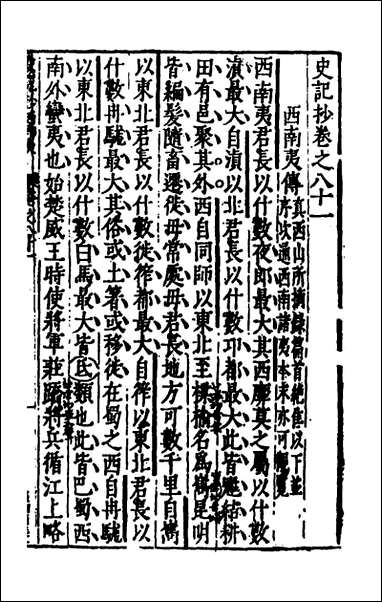 史記抄卷之八十一
西南夷傳
真西山所摘錄篇首絶色以下並
序次通西南諸夷本末亦可觀覽
西南夷君長以什數夜郎最大其西靡莫之屬以什數
滇最大自滇以北君長以什數卭都最大此皆魋結耕
田有邑聚其外西自同師以東北至楪榆名爲嶲昆明
皆編髮隨畜遷徙毋常處毋君長地方可數千里自嶲
以東北君長以什數徙筰都最大自筰以東北君長以
什數冉駹最大其俗或土著或移徙在蜀之西自冉駹
以東北君長以什數白馬最大皆氐類也此皆巴蜀西
南外蠻夷也始楚威王時使將軍莊蹻將兵循江上略